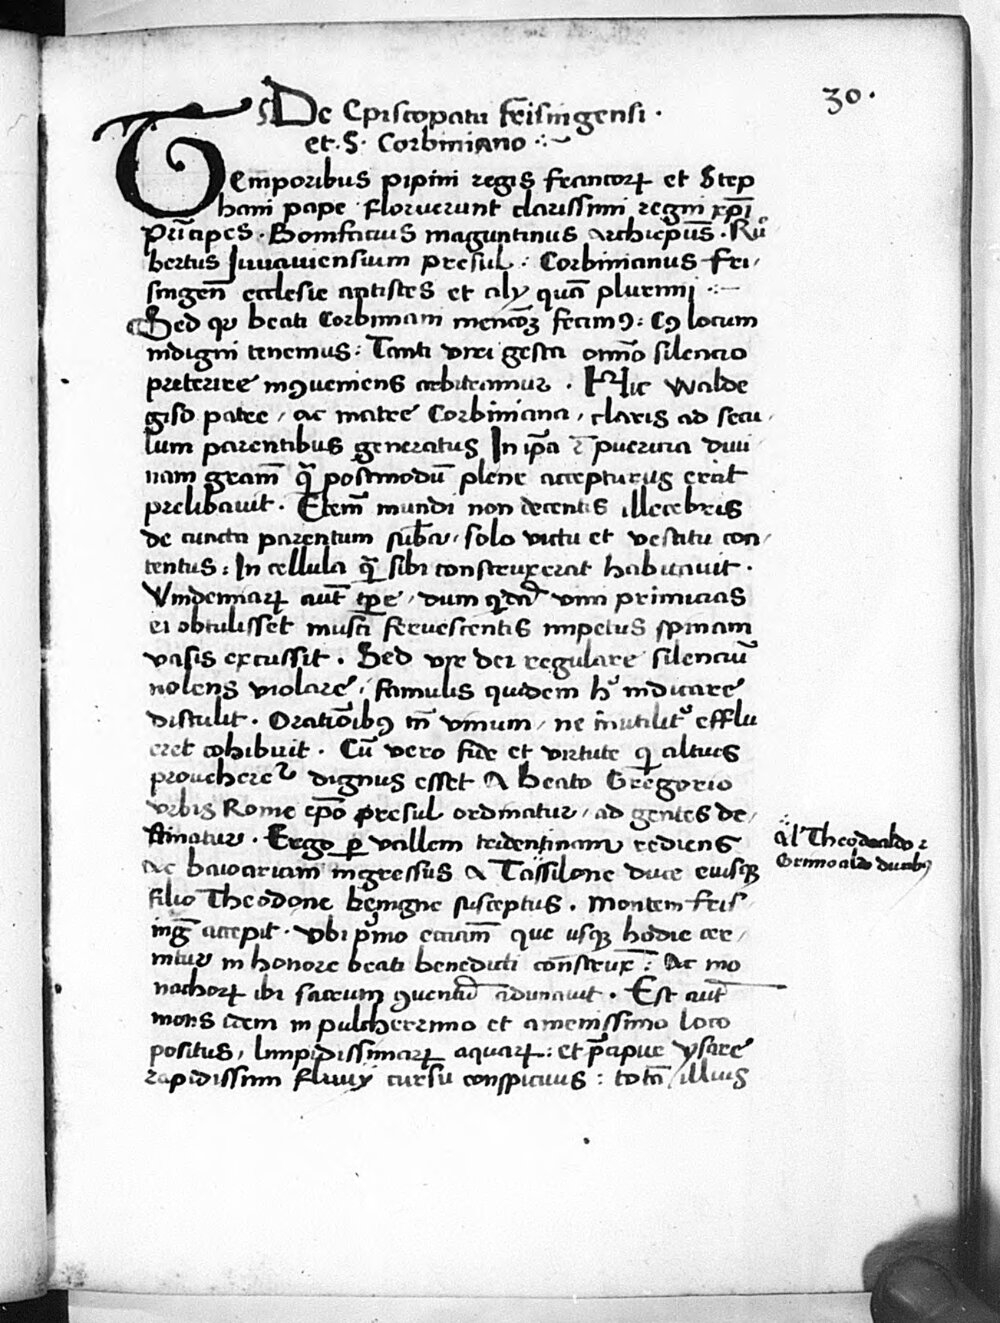 30.
De Episcopatu Frisingensi.
et. S. Corbiniano
Temporibus pipini regis francorꝝ et Step
hani pape floruerunt clarissimi regni xp̄i
Prīcipes. Bonifacius maguntinus Archiep̄us. Rů
bertus Juuauiensium presul: Corbinianus Fri/
singeñ ecclesie antistes et alÿ quā plurimi
Sed qꝛ beati Corbiniani mencōꝫ fecimꝯ: Cꝯ locum
indigni tenemus: Tanti viri gesta omīo silencio
preterire inꝯueniens arbitramur. Hic Walde
giso patre, ac matre Corbiniana, claris ad secu/
lum parentibus generatus In ip̄a ī puericia diui/
nam gram̄ qꝫ postmodū plene accepturus erat
prelibauit. Eteim̄ mundi non decentis illecebris
de cuncta parentum subā, solo victu et vestitu con/
tentus: In cellula qꝫ sibi construxerat habitauit.
Vindemiarꝝ aut̄ tp̄re, dum qꝰdā vini primicias
ei obtulisset musti feruescentis impetus spinam
vasis excussit. Sed vir dei regulare silenciū
nolens violare, famulis quidem hͦ indicare
distulit. Oratiōibꝯ tn̄ vinum, ne inutilitꝰ efflu
eret cohibuit. Cū vero fide et virtute qꝫ altius
proueheretꝰ dignus esset A beato Gregorio
vrbis Rome ep̄o presul ordinatur, ad gentes de/
stinatur. Ergo ꝑ vallem tridentinam rediens
Ac baioariam ingressus A Tassilone duce eiusqꝫ
filio Theodone benigne susceptus. Montem fris/
ing̃ accepit. vbi pͥmo eciam̄ que usqꝫ hodie cer/
nitur in honore beati benedicti cōnstrux̄: Ac mo
nachorꝝ ibi sacrum ꝯuentū adunauit. Est aut̄
mons idem in pulcherrimo et amenissimo loco
positus, limpidissimarꝝ aquarꝝ: et p̄cipue ysare
rapidissimi fluuÿ cursu conspicuus: totā illius
al' Theodoaldo ⁊
Grimoaldo ducibꝯ